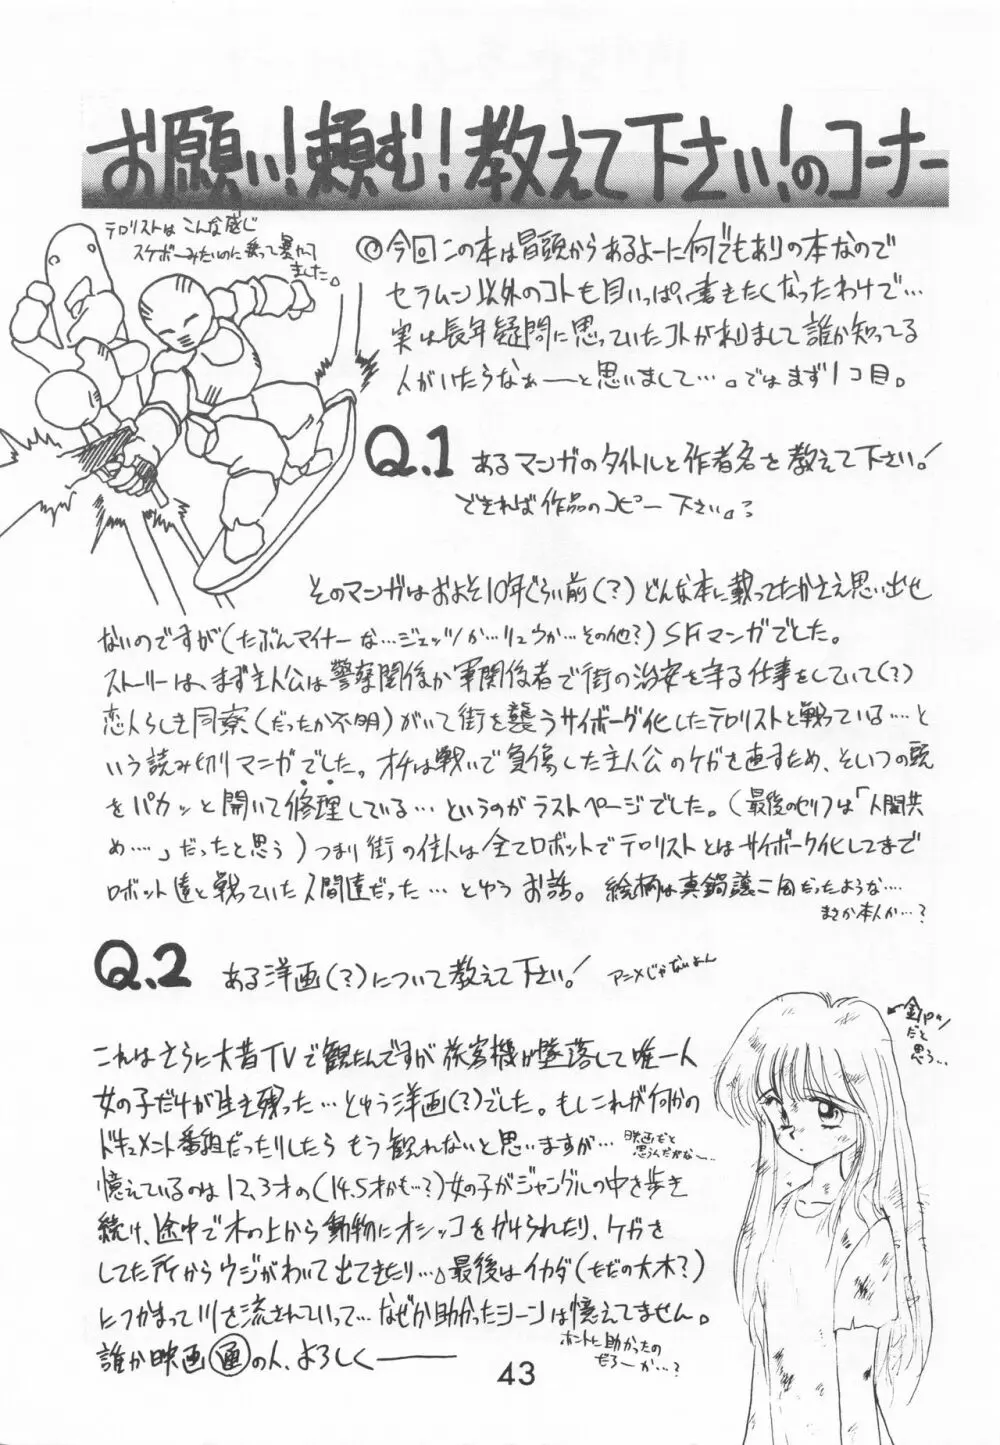 お願い!頼む!教えて下さい!のコーナー
テロリストはこんな感じ
スケボーみたいのに乗って暴れて
ました。
◎今回この本は冒頭からあるよーに何でもありの本なので
セラムン以外のコトも目いっぱい書きたくなったわけで…
実は長年疑問に思っていたコトがありまして誰か知ってる
人がいたらなぁーと思いまして…。ではまず1コ目。
Q.1 あるマンガのタイトルと作者名を教えて下さい!
できれば作品のコピー下さい。
そのマンガはおよそ10年ぐらい前(?)どんな本に載ってたかさえ思い出せ
ないのですが(たぶんマイナーな…ジェッツか…リュウか…その他?)SFマンガでした。
ストーリーは、まず主人公は警察関係か軍関係者で街の治安を守る仕事をしていて(?)
恋人らしき同寮(だったか不明)がいて街を襲うサイボーグ化したテロリストと戦っている…と
いう読み切りマンガでした。オチは戦いで負傷した主人公のケガを直すため、そいつの頭
をパカッと開いて修理している…というのがラストページでした。(最後のセリフは「人間共
め…」だったと思う)つまり街の住人は全てロボットでテロリストとはサイボーグ化してまで
ロボット達と戦っていた人間達だった…とゆうお話。絵柄は真鍋譲二風だったような…
まさか本人か…?
Q.2 ある洋画(?)について教えて下さい!
アニメじゃないよん
これはさらに大昔TVで観たんですが旅客機が墜落して唯一人
女の子だけが生き残った…とゆう洋画(?)でした。もしこれが何かの
ドキュメント番組だったりしたらもう観れないと思いますが…
映画だと
思うんだがなー…
憶えているのは12,3才の(14.5才かも…?)女の子がジャングルの中を歩き
続け、途中で木の上から動物にオシッコをかけられたり、ケガを
した所からウジがわいて出てきたり…。最後はイカダ(ただの大木?)
につかまって川を流されていって…なぜか助かったシーンは憶えてません。
ホントに助かったの
だろーか…?
誰か映画通の人、よろしくー
←金パツ
だと
思う…
43